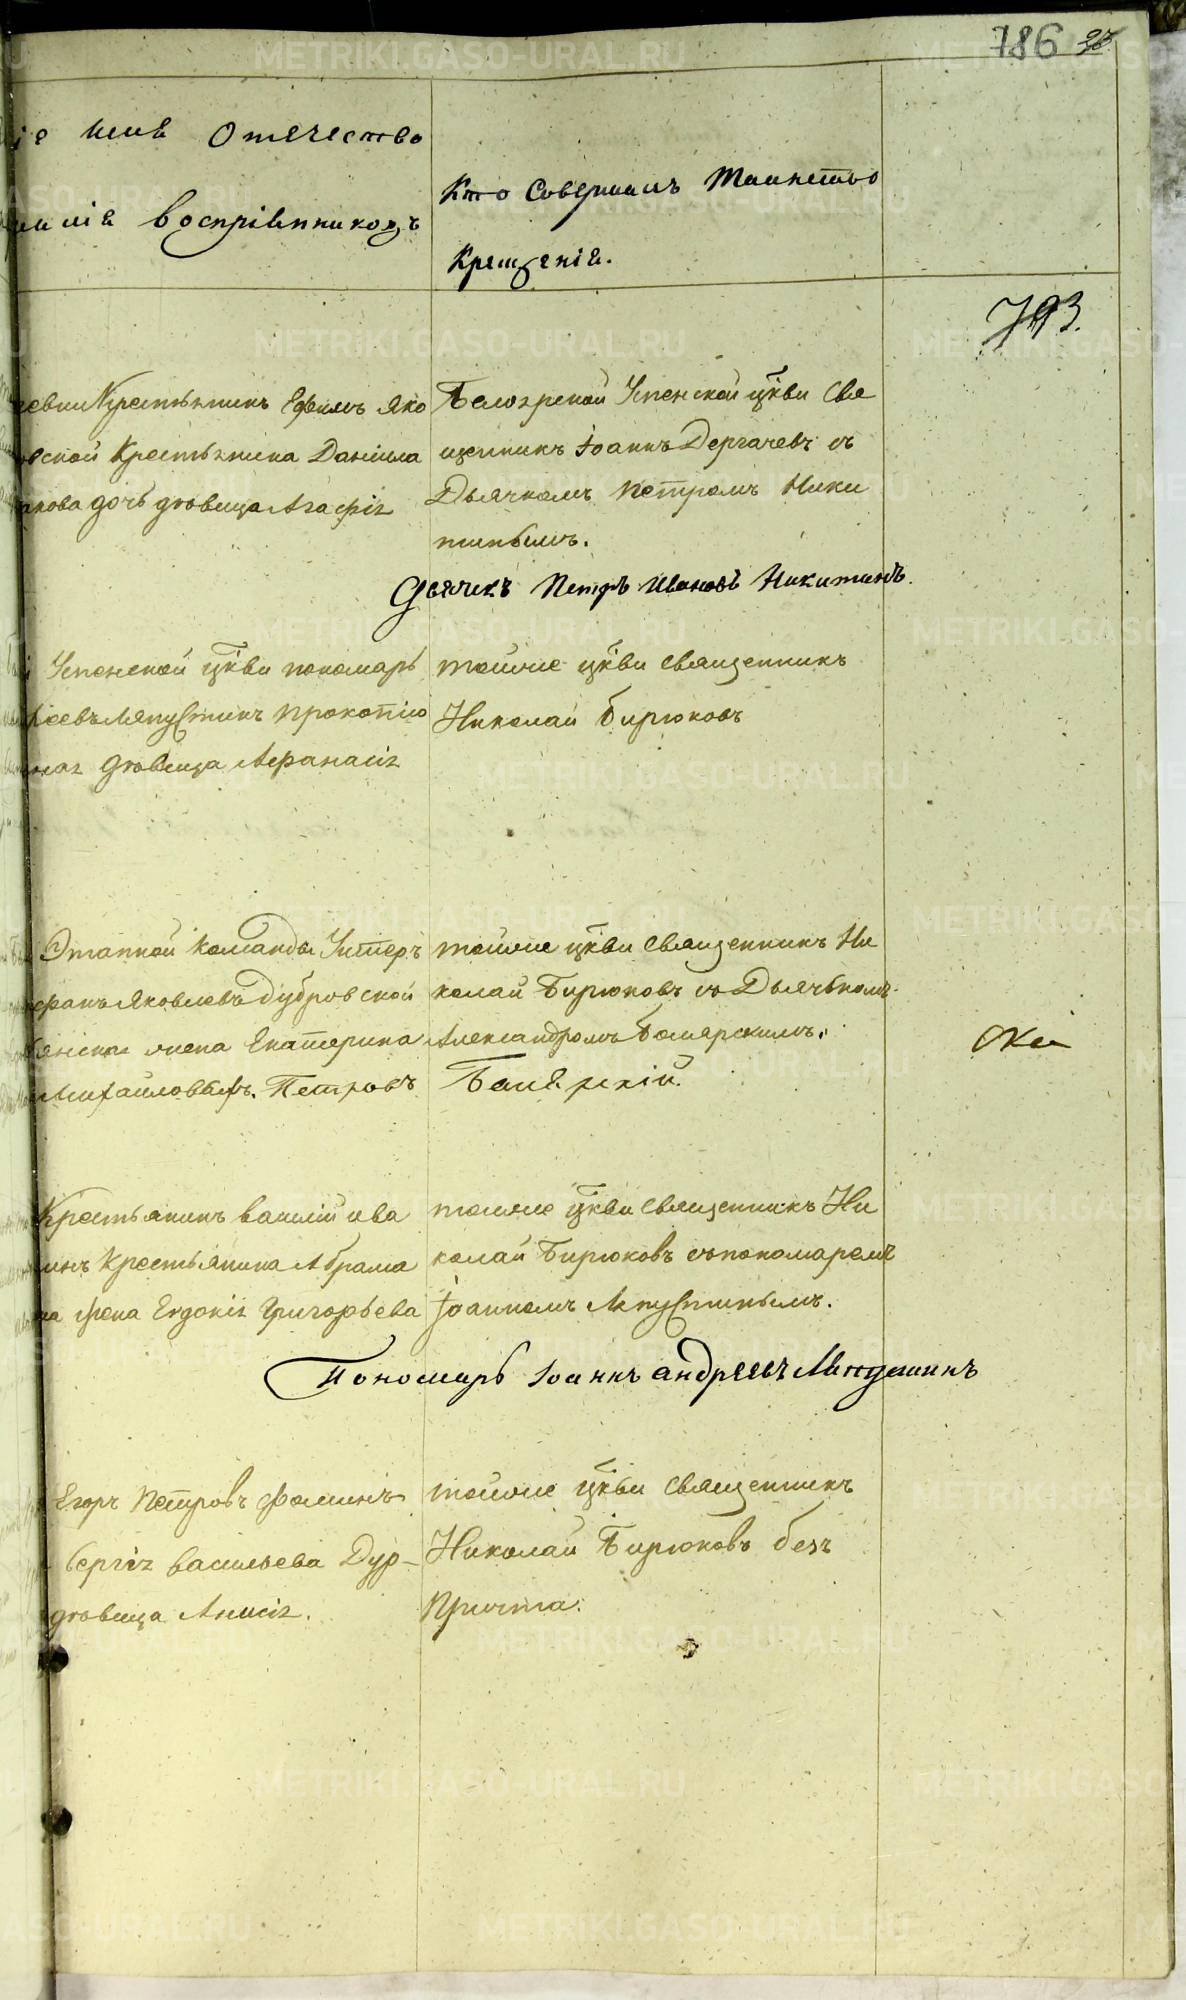 786
іе имя Отечество
иліе восприемниковъ
Кто Совершалъ Таинство
Крещенія.
793.
ревни Крестьянинъ Ефимъ Яко
овской Крестьянина Даніила
акова дочь девица Агафія
Белоярской Успенской цркви Свя
щенникъ Іоаннъ Дергачевъ съ
Дьячкомъ Петромъ Ники
тинымъ.
Дьячекъ Петръ Ивановъ Никитинъ.
Успенской цркви пономарь
реевъ Ляпустинъ Прокопію
ная девица Афанасія
тойже цркви священникъ
Николай Бирюковъ
Этапной Команды Унтеръ
ефанъ Яковлевъ Дубровской
жена Екатерина
Михайлова. Петровъ
тойже цркви священникъ Ни
колай Бирюковъ съ Дьячькомъ
Александромъ Боярскимъ.
Боярскій.
Крестьянинъ Василій Ива
инъ Крестьянина Абрама
на жена Евдокія Григорьева
тойже цркви священникъ Ни
колай Бирюковъ съ пономаремъ
Іоанномъ Ляпустинымъ.
Пономарь Іоаннъ Андреевъ Ляпустинъ
Егоръ Петровъ Фоминъ
Сергія Васильева Дур-
девица Анисія.
тойже цркви священникъ
Николай Бирюковъ безъ
Причта.
METRIKI.GASO-URAL.RU